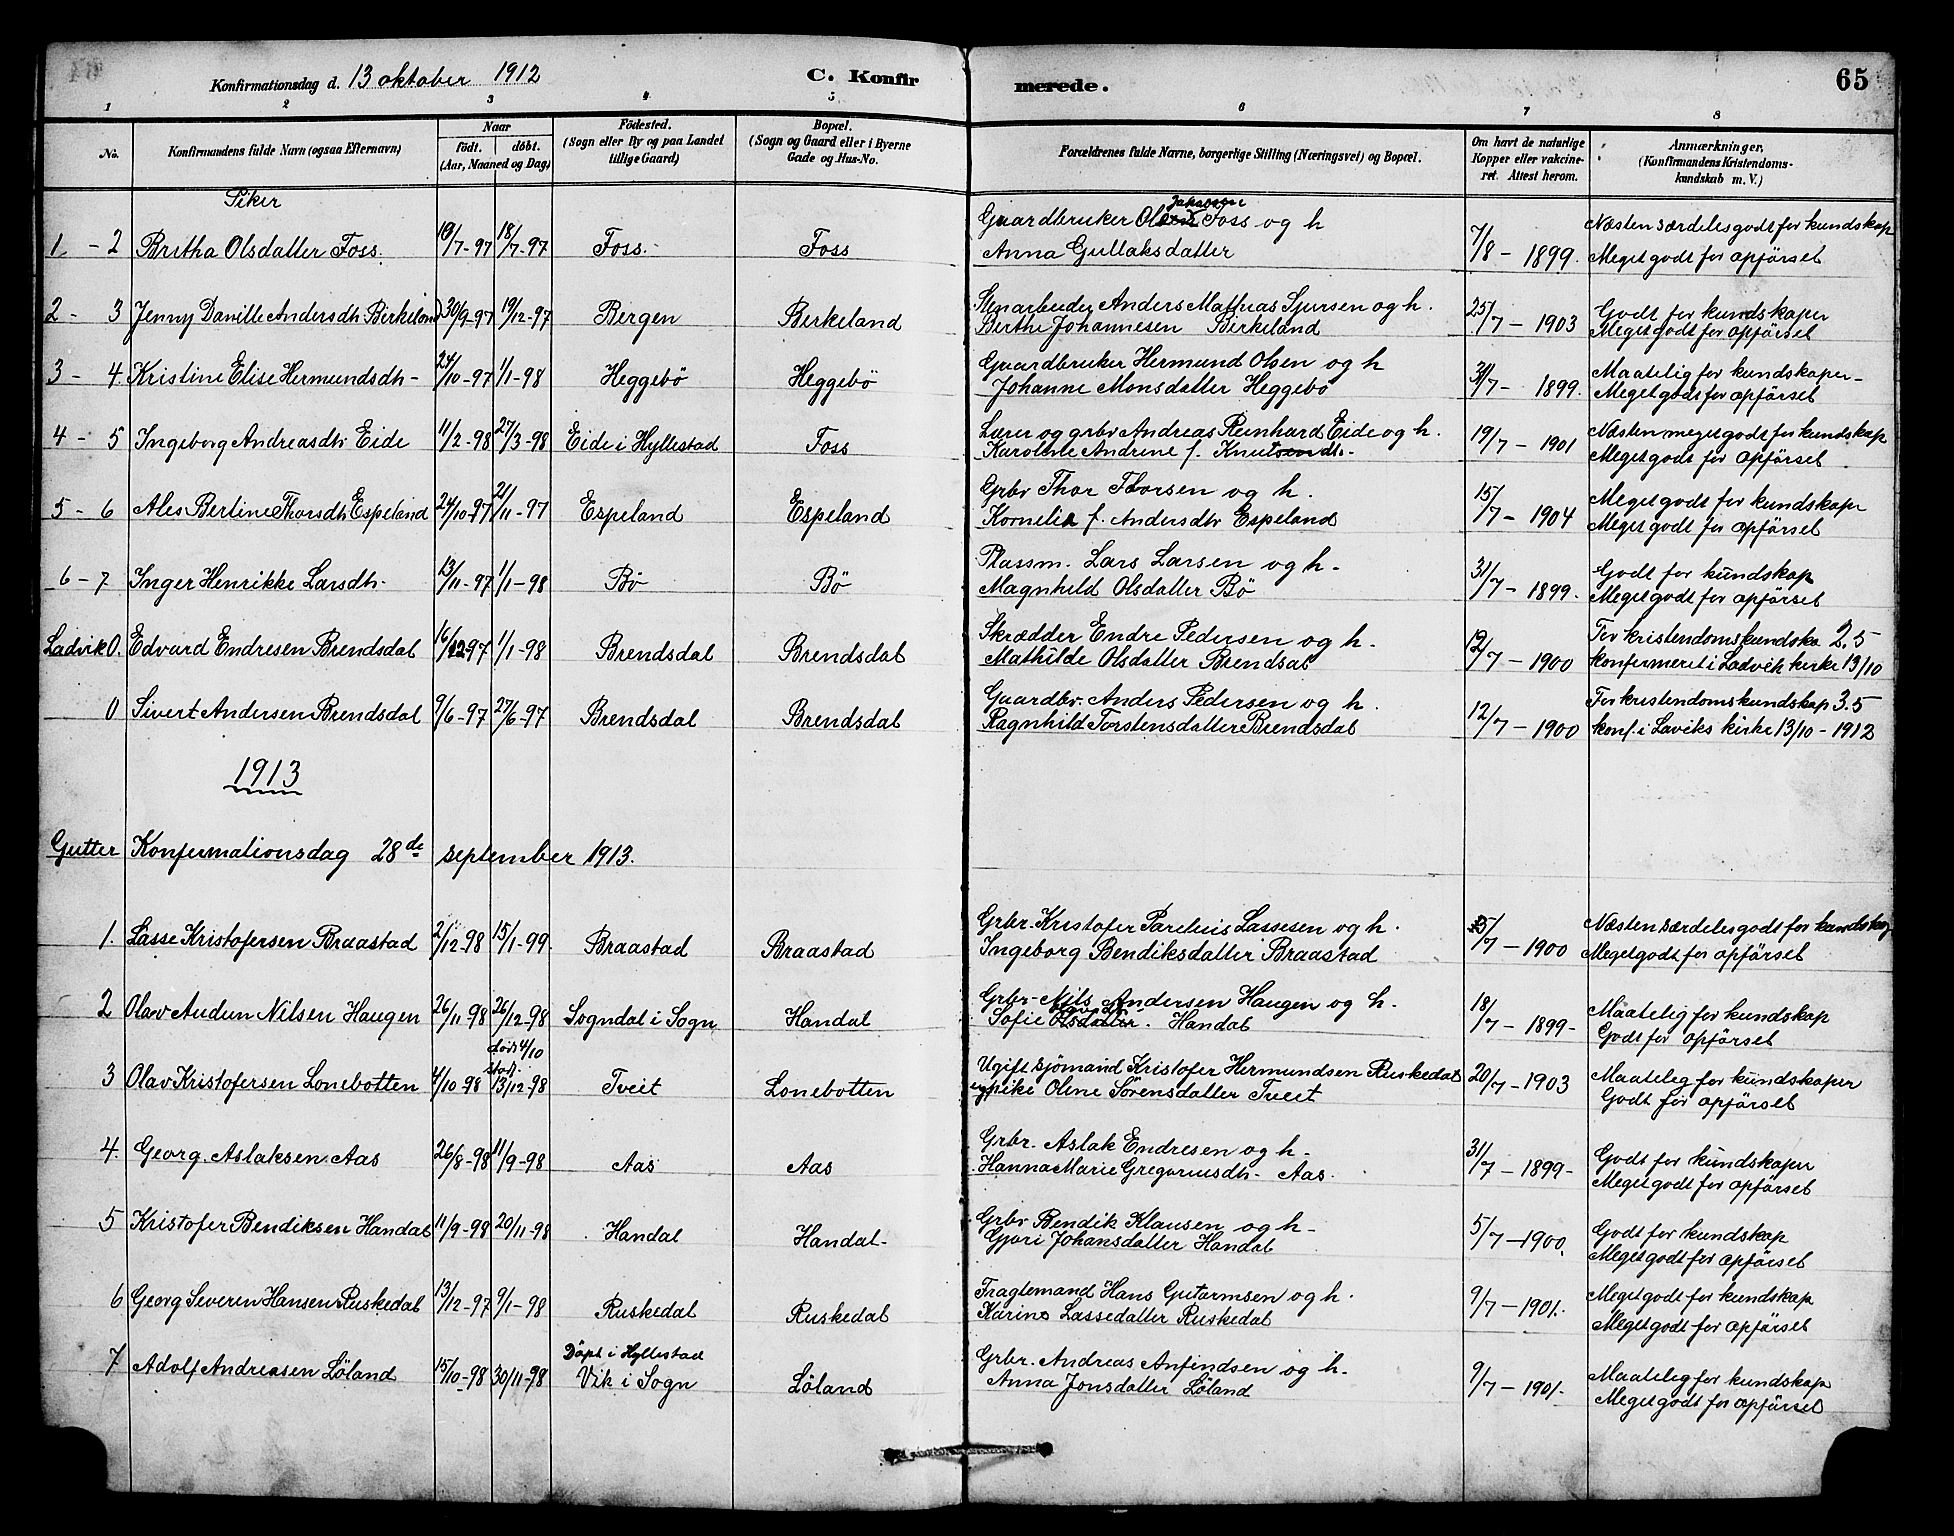 Konfirmationsdag d. 13 oktober 1912 C. Konfirmerede. 65
1 2 3 4 5 6 7 8
No.
Konfirmandens fulde Navn (ogsaa Efternavn)
Naar
født. døbt.
(Aar, Maaned og Dag)
Födested.
(Sogn eller By og paa Landet
tillige Gaard)
Bopæl.
(Sogn og Gaard eller i Byerne
Gade og Hus-No.
Forældrenes fulde Navne, borgerlige Stilling (Næringsvei) og Bopæl.
Om havt de naturlige
Kopper eller vakcine-
ret. Attest herom.
Anmærkninger,
(Konfirmandens Kristendoms-
kundskab m. V.)
Piker
1 - 2 Britha Olsdatter Foss. 19/7-97 18/7-97 Foss. Foss
Gaardbruker Ole Jakobsen Foss og h
Anna Gullaksdatter
7/8 - 1899.
Næsten særdeles godt for kundskap
Meget godt for opförsel
2 - 3 Jenny Danille Andersdtr Birkeland 30/9-97 19/12-97 Bergen Birkeland
Stenarbeider Anders Mathias Sjursen og h.
Berthe Johannesen Birkeland
25/7 - 1903
Godt for kundskaper
Meget godt for opförsel
3 - 4. Kristine Elise Hermundsdtr - 24/10-97 1/1-98 Heggebö Heggebö
Gaardbruker Hermund Olsen og h
Johanne Monsdatter Heggebö
31/7 - 1899.
Maatelig for kundskaper -
Meget godt for opförsel
4 - 5 Ingeborg Andreasdtr Eide 11/2-98 27/3-98 Eide i Hyllestad Foss
Lærer og grbr Andreas Reinhard Eide og h.
Karoline Andrine f. Knutsendtr.
19/7 - 1901
Næsten meget godt for kundskap
Meget godt for opförsel
5 - 6 Ales Bertine Thorsdtr Espeland 24/10-97 21/11-97 Espeland Espeland
Grbr Thor Thorsen og h.
Kornelia f. Andersdtr Espeland
15/7 - 1904
Meget godt for kundskaper
Meget godt for opförsel
6 - 7 Inger Henrikke Larsdtr. 13/11-97 1/1-98 Bö Bö
Plassm. Lars Larsen og h -
Magnhild Olsdatter Bö
31/7 - 1899.
Godt for kundskap
Meget godt for opförsel
Ladvik 0. Edvard Endresen Brendsdal 16/12 97 1/1-98 Brendsdal Brendsdal
Skrædder Endre Pedersen og h.
Mathilde Olsdatter Brendsal
12/7 - 1900
For kristendomskundska 2.5
konfermeret i Ladvik kirke 13/10
0 Sivert Andersen Brendsdal 9/6-97 27/6-97 Brendsdal Brendsdal
Gaardbr. Anders Pedersen og h.
Ragnhild Torstensdatter Brendsdal
12/7 - 1900
For kristendomskundskap 3.5
konf. i Laviks kirke 13/10 - 1912
1913
Gutter Konfirmationsdag 28de september 1913.
1. Lasse Kristofersen Braastad 2/12-98 15/1-99. Braastad Braastad
Grbr. Kristofer Parelius Lassesen og h.
Ingeborg Bendiksdatter Braastad
5/7 - 1900
Næsten særdeles godt for kundskap
Meget godt for opförsel
2 Olav Audun Nilsen Haugen 26/11-98 26/12-98 Sogndal i Sogn Handal
Grbr - Nils Andersen Haugen og h.
Sofie Olsdatter. Handal
18/7 - 1899 -
Maatelig for kundskap
Godt for opförsel
3 Olav Kristofersen Lonebotten 4/10-98 döbt 4/10 stadf. 13/12-98 Tveit Lonebotten
Ugift sjömand Kristofer Hermundsen Ruskedal
og pike Oline Sörensdatter Tveit
20/7 - 1903
Maatelig for kundskaper
Godt for opförsel
4. Georg. Aslaksen Aas 26/8-98 11/9-98 Aas Aas
Grbr. Aslak Endresen og h -
Hanna Marie Gregoriusdtr - Aas.
31/7 - 1899 -
Godt for kundskaper
Meget godt for opförsel
5 Kristofer Bendiksen Handal 11/9-98 20/11-98 Handal Handal -
Grbr Bendik Klausen og h -
Gjöri Johansdatter Handal
5/7 - 1900.
Godt for kundskap
Meget godt for opförsel
6 Georg Severin Hansen Ruskedal 13/12-97 9/1-98 Ruskedal Ruskedal
Fragtemand Hans Gutormsen og h.
Karine Lassedatter Ruskedal
9/7 - 1901.
Meget godt for kundskap
Meget godt for opförsel
7 Adolf Andreasen Löland 15/10-98 30/11-98 Döpt i Hyllestad Vik i Sogn Löland
Grbr. Andreas Anfindsen og h -
Anna Jonsdatter Löland
9/7 - 1901.
Maatelig for kundskap
Meget godt for opförsel